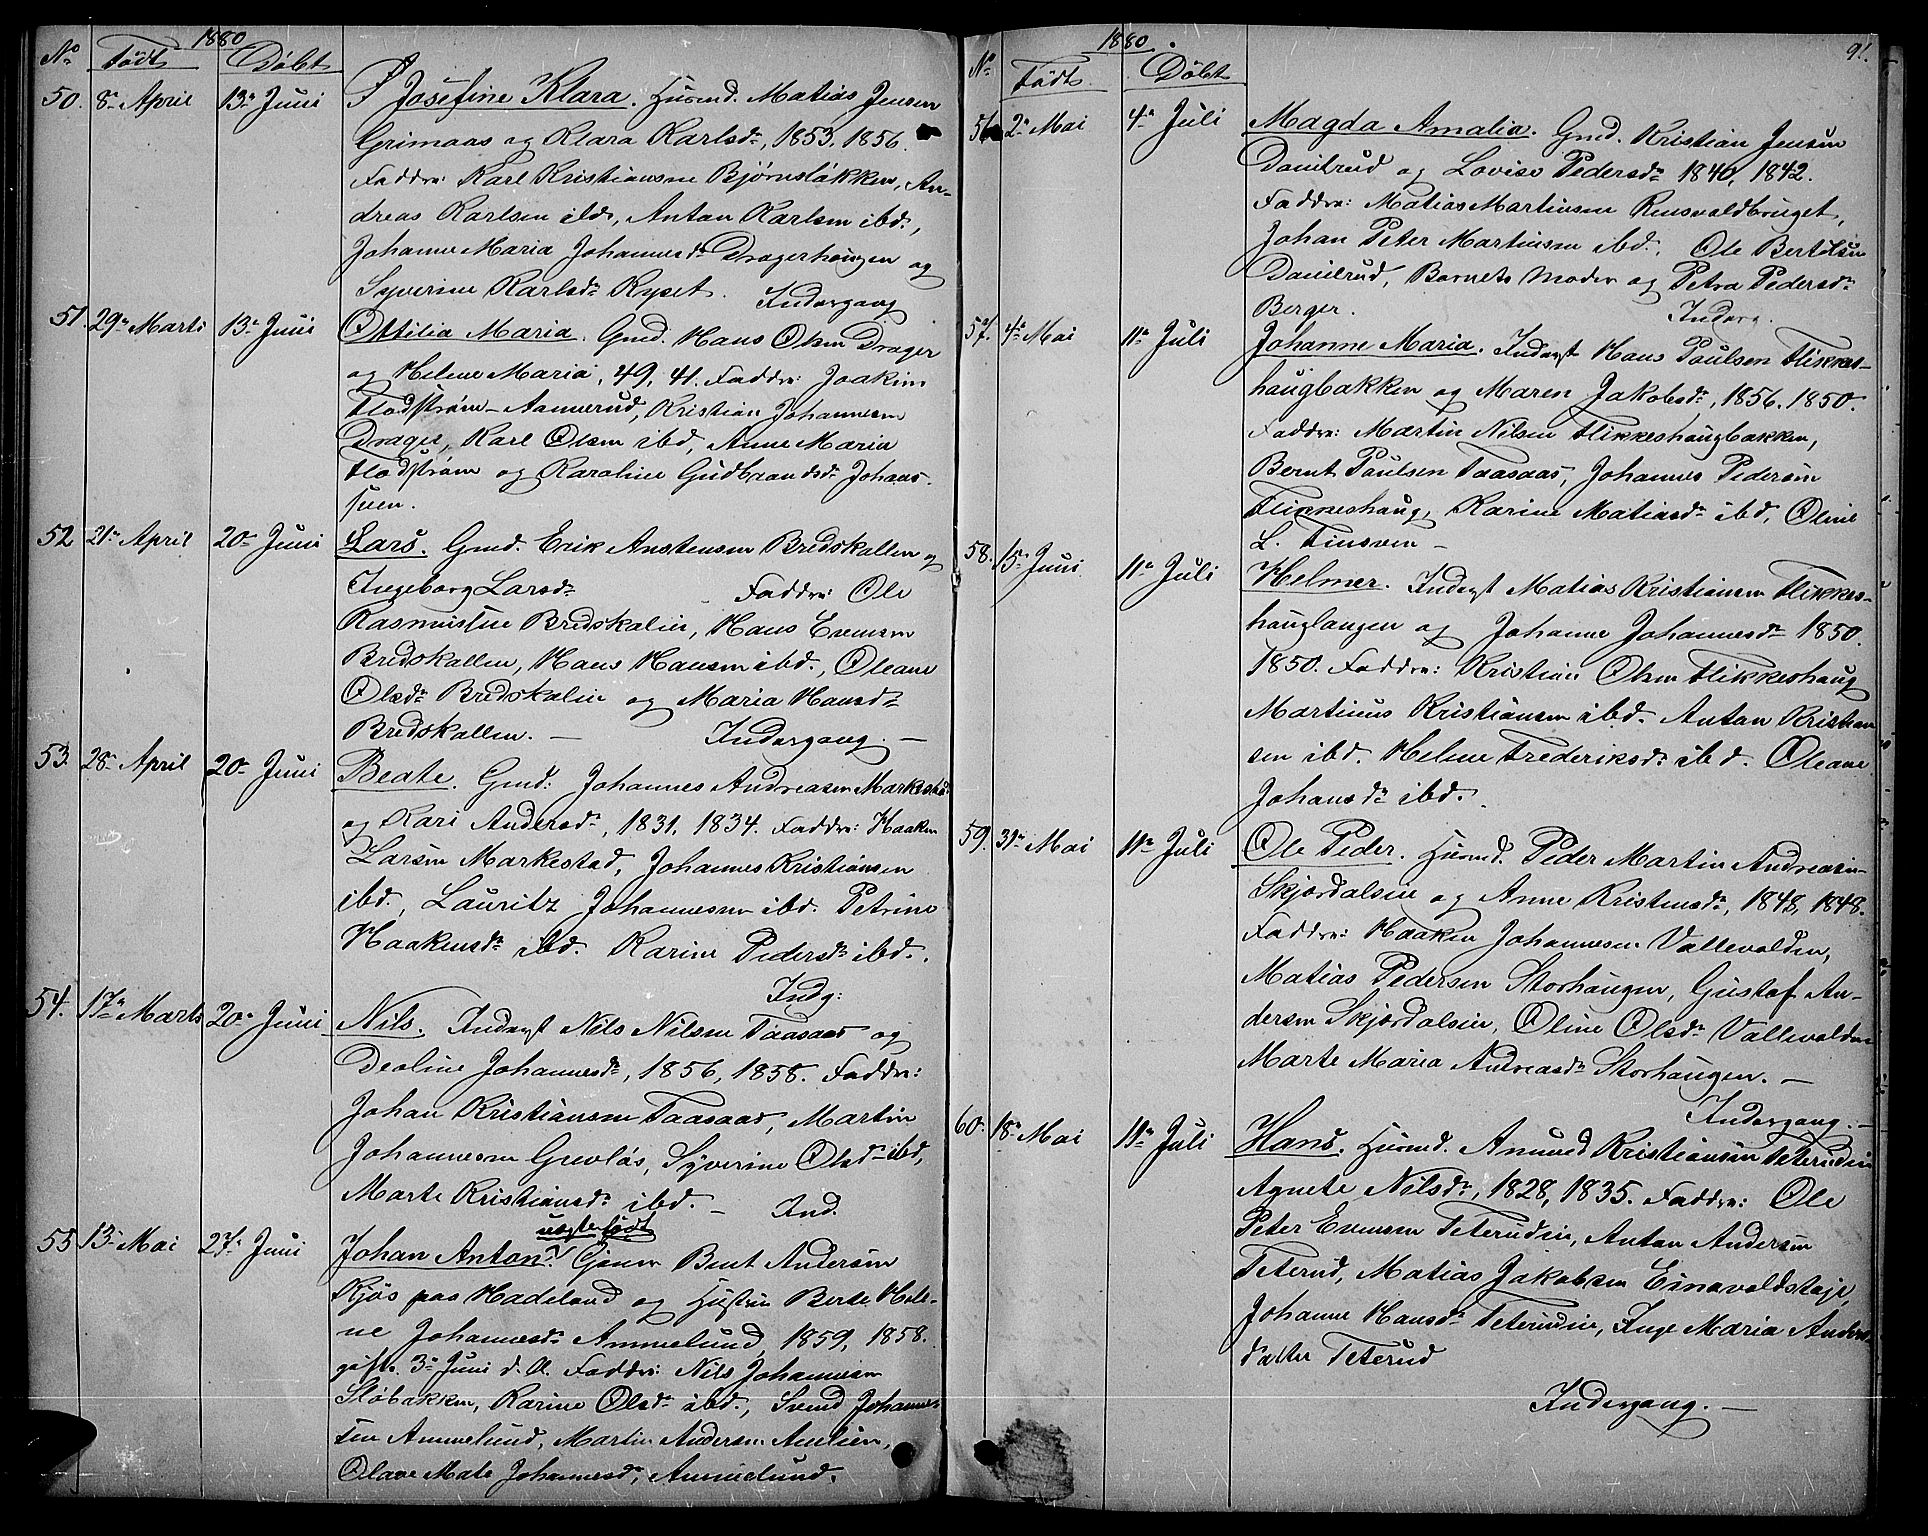 1880
No Födt Döbt
50. 8de April 13de Juni Josefine Klara. Husmd. Matias Jensen
Grimaas og Klara Karlsdr, 1853, 1856.
Faddre: Karl Kristiansen Bjørnsløkken, An-
dreas Karlsen ibd, Anton Karlsen ibd.,
Johanne Maria Johannesdr Dragerhaugen og
Syverine Karlsdr Ryset. Indergang
51. 29de Marts 13de Juni Ottilia Maria. Gmd. Hans Olsen Drager
og Helene Maria, 49, 41. Faddre: Joakim
Flodstrøm Aannerud, Kristian Johannesen
Drager, Karl Olsen ibd, Anne Maria
Flodstrøm og Karoline Gudbrandsdr Johans-
sveen.
52 21de April 20de Juni Lars. Gmd. Erik Anstensen Bredskallen og
Ingeborg Larsdr Faddre: Ole
Rasmussen Bredskalien, Hans Evensen
Bredskallen, Hans Hansen ibd., Oleane
Olsdr Bredskalien og Maria Hansdr
Bredskallen. — Indergang. —
53. 28de April 20de Juni Beate. Gmd: Johannes Andreasen Markestad
og Kari Andersdr, 1831, 1834. Faddre: Haaken
Larsen Markestad, Johannes Kristiansen
ibd., Lauritz Johannesen ibd. Petrine
Haakensdr ibd. Karine Pedersdr ibd.
Indg:
54. 17de Marts 20de Juni Nils. Inderst Nils Nilsen Taasaas og
Deoline Johannesdr, 1856, 1858. Faddre:
Johan Kristiansen Taasaas, Martin
Johannesen Grevlös, Syverine Olsdr ibd,
Marte Kristiansdr ibd. — Ind.
uegtefödt
55 13de Mai 27de Juni Johan Anton. Gjenm Bent Andersen
Kjös paa Hadeland og Hustru Berte Hele-
ne Johannesdr Ammelund, 1859, 1858.
gift 3de Juni d. A. Faddre: Nils Johannesen
Slöbakken, Karine Olsdr ibd., Svend Johannes-
sen Ammelund, Martin Andersen Amlien,
Olave Mate Johannesdr, Ammelund.
1880. 91.
No Födt. Döbt
56 2de Mai 4de Juli Magda Amalia. Gmd. Kristian Jensen
Danilrud og Lovise Pedersdr 1840, 1842.
Faddre: Matias Martinsen Rensvaldbruget,
Johan Peter Martinsen ibd., Ole Bertelsen
Danilrud, Barnets Moder og Petra Pedersdr
Berger. Inderg.
57. 4de Mai 11de Juli Johanne Maria. Inderst Hans Paulsen Flikkes-
haugbakken og Maren Jakobsdr, 1856, 1850.
Faddre: Martin Nilsen Flikkeshaugbakken,
Bernt Paulsen Taasaas, Johannes Pedersen
Flikkeshaug, Karine Matiasdr ibd, Oline
L. Finsveen —
58. 15de Juni 11de Juli Helmer. Inderst Matias Kristiansen Flikkes-
hauglangen og Johanne Johannesdr 1850
1850. Faddre: Kristian Olsen Flikkeshaug
Martinus Kristiansen ibd. Anton Kristian
sen ibd. Helene Frederiksdr ibd. Oleane
Johansdr ibd.
59. 31de Mai 11de Juli Ole Peder. Husmd. Peder Martin Andreasen
Skjørdalseie og Anne Kristensdr, 1848, 1848.
Faddre: Haaken Johannesen Vallevolden,
Matias Pedersen Storhaugen, Gustaf An-
dersen Skjørdalseie, Oline Olsdr Vallevolden
Marte Maria Andreasdr Storhaugen. —
Indergang. —
60. 18de Mai 11de Juli Hans. Husmd. Amund Kristiansen Teterudeie
Agnete Nilsdr, 1828, 1835. Faddre: Ole
Peter Evensen Teterudeie, Anton Andersen
Teterud, Matias Jakobsen Einavoldstøje,
Johanne Hansdr Teterudeie, Inge Maria Anders
datter Teterud
Indergang. —